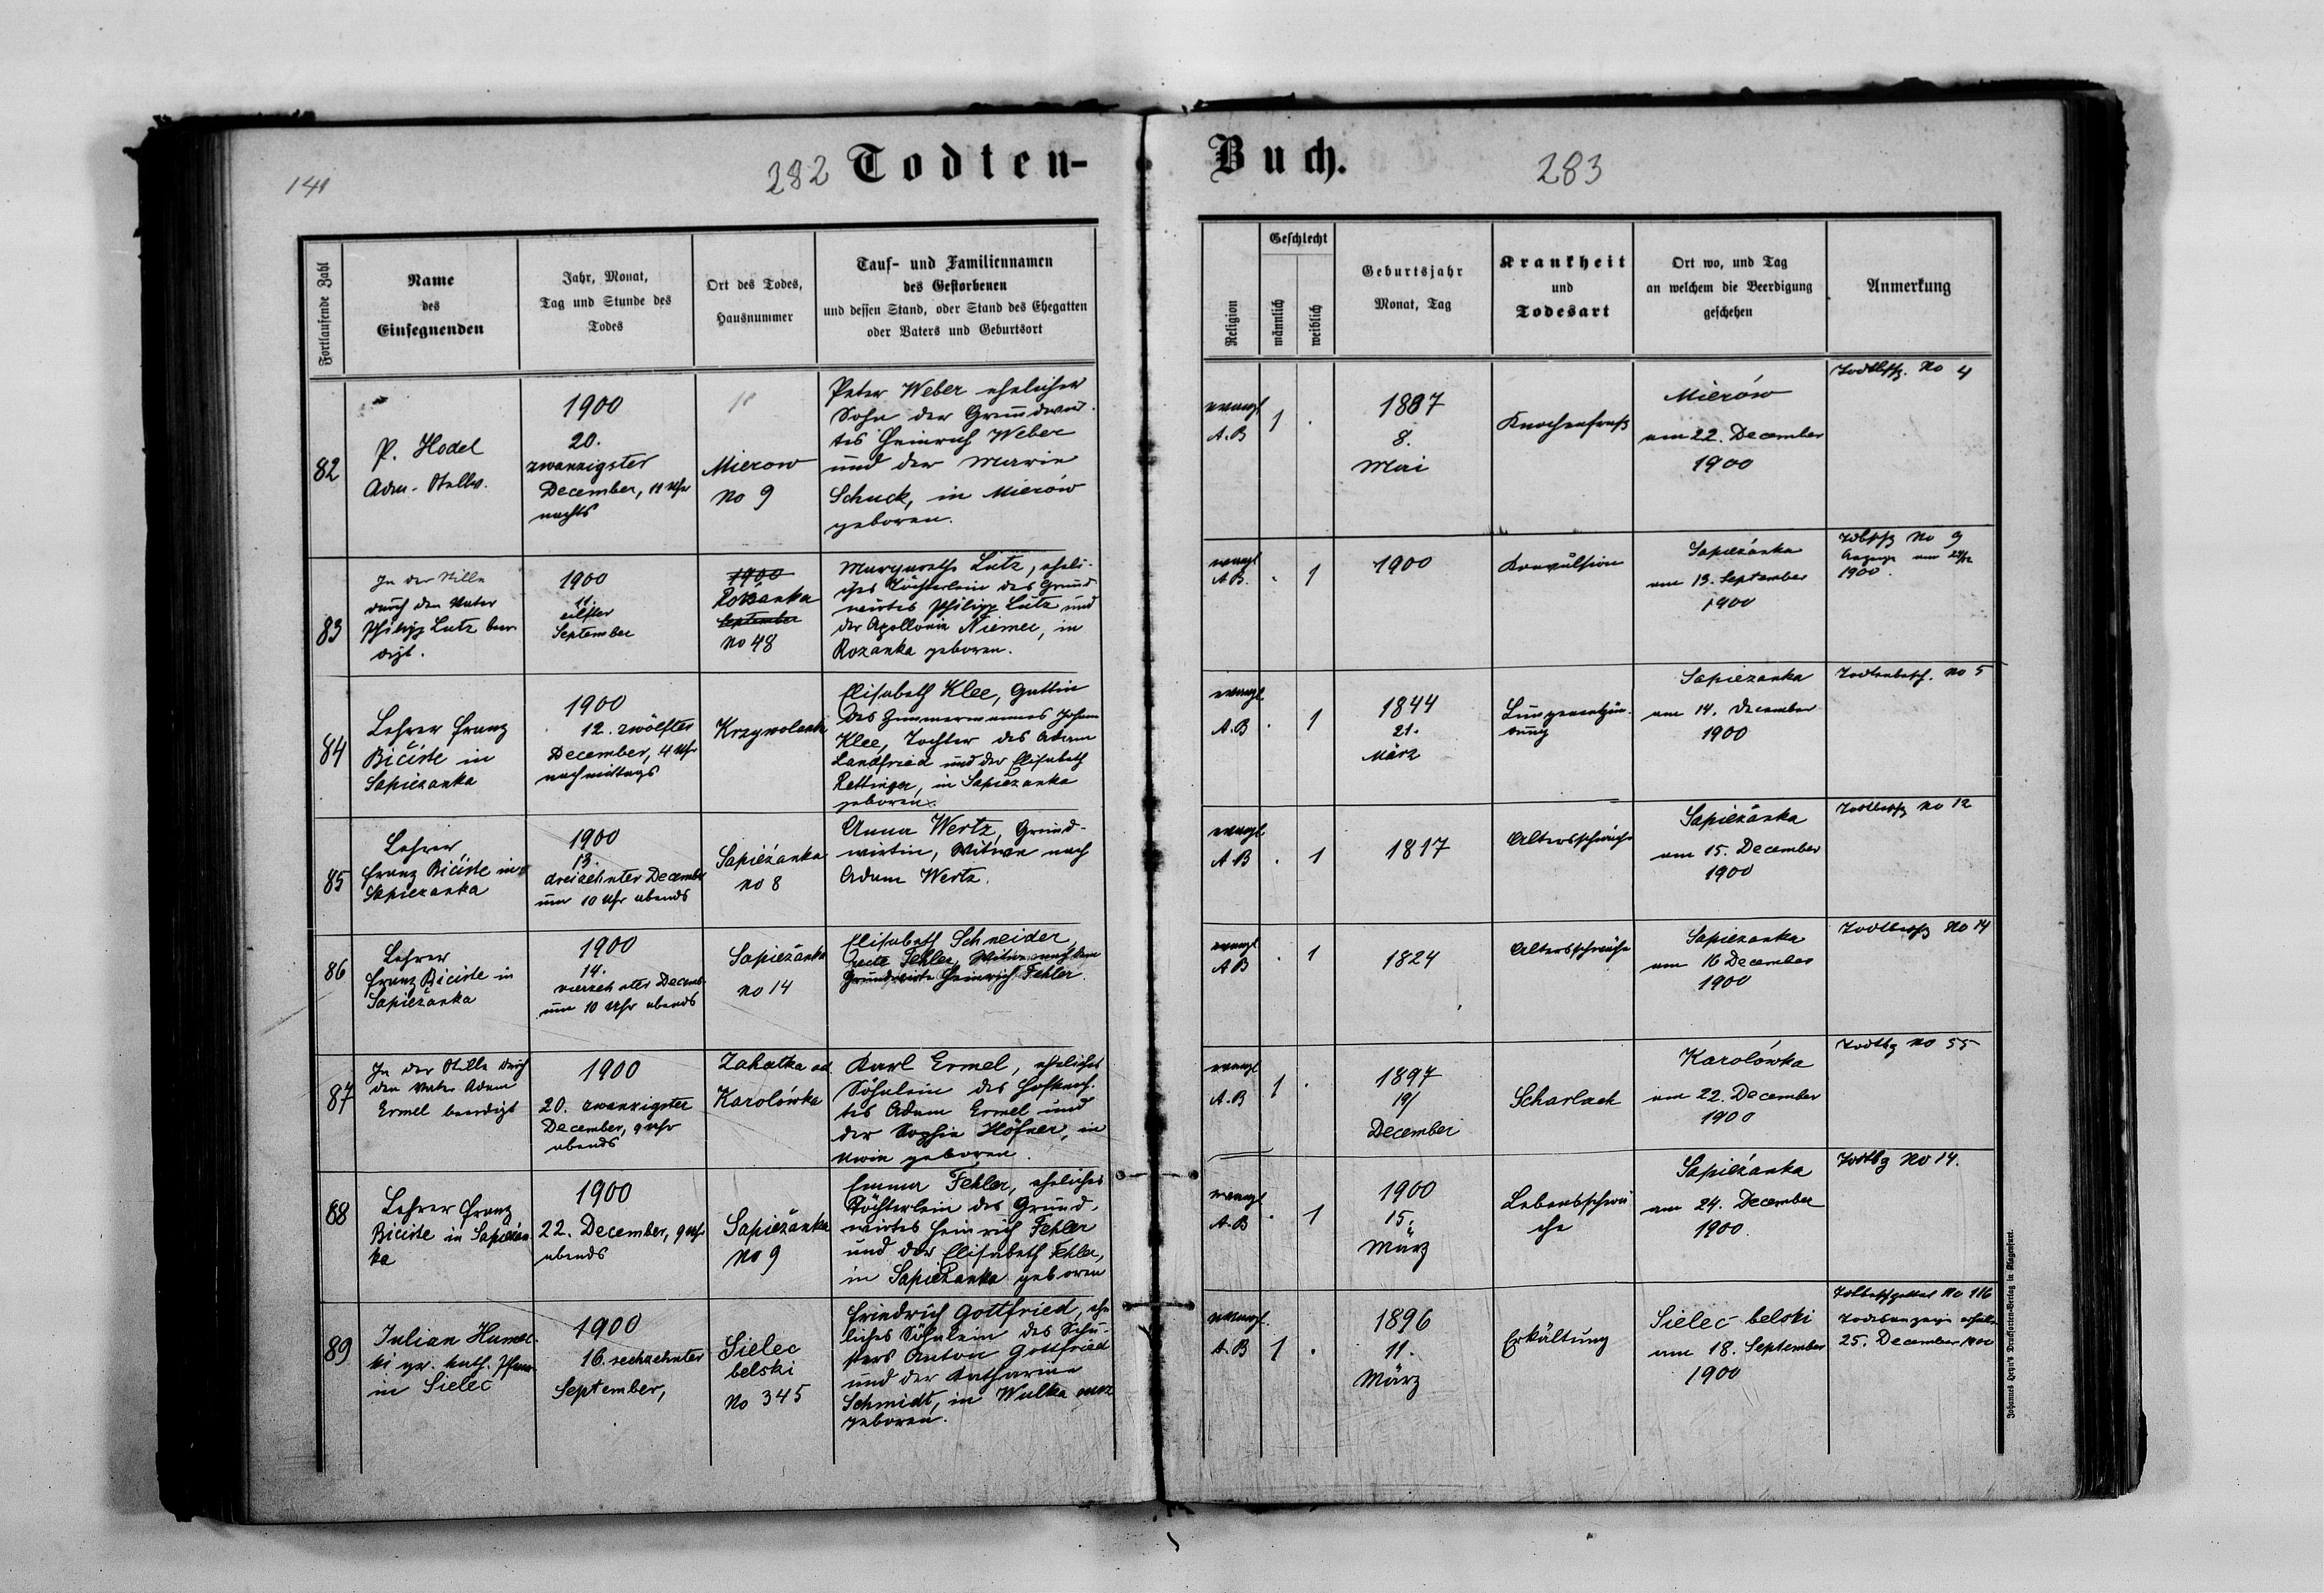 141
282 Todten-
Buch. 283
Fortlaufende Zahl
Name
des
Einsegnenden
Jahr, Monat,
Tag und Stunde des
Todes
Ort des Todes,
Hausnummer
Tauf- und Familiennamen
des Gestorbenen
und dessen Stand, oder Stand des Ehegatten
oder Vaters und Geburtsort
Religion
Geschlecht
männlich
weiblich
Geburtsjahr
Monat, Tag
Krankheit
und
Todesart
Ort wo, und Tag
an welchem die Beerdigung
geschehen
Anmerkung
82
P. Hodel
Adm. Stellv.
1900
20.
zwanzigster
December, 11 Uhr
nachts
Mierow
No 9
Peter Weber ehelicher
Sohn der Grundwir-
tes Heinrich Weber
und der Marie
Schuck, in Mierów
geboren.
evangl
A.B
1
1887
8.
Mai
Knochenfraß
Mierów
am 22. December
1900
No 4
83
In der Stille
durch den Vater
Philipp Lutz beer-
digt.
1900
11.
eilfter
September
1900
Rożanka
September
No 48
Margareth Lutz, eheli-
ches Töchterlein des Grund-
wirtes Philipp Lutz und
der Apollonia Niemec, in
Rozanka geboren.
evangl
A.B.
1
1900
Konvulsion
Sapieżanka
am 13. September
1900
No 9
1900.
84
Lehrer Franz
Bićiste in
Sapiezanka
1900
12. zwölfter
December, 4 Uhr
nachmittags
Krzywolanka
Elisabeth Klee, Gattin
des Zimmermannes Johann
Klee, Tochter des Adam
Landfried und der Elisabeth
Rettinger, in Sapiezanka
geboren.
evangl.
A.B
1
1844
21.
März
Lungenentzün-
dung
Sapiezanka
am 14. December
1900
Todtenbesch. No 5
85
Lehrer
Franz Bićiste in
Sapiezanka
1900
13.
dreizehnter December
um 10 Uhr abends
Sapieżanka
No 8
Anna Wertz, Grund-
wirtin, Witwe nach
Adam Wertz.
evangl
A.B
1
1817
Altersschwäche
Sapieżanka
am 15. December
1900
No 12
86
Lehrer
Franz Biciste in
Sapieżanka
1900
14.
vierzehnter Decemb.
um 10 Uhr abends
Sapieżanka
No 14
Elisabeth Schneider,
recte Fehler, Witwe nach dem
Grundwirte Heinrich Fehler
evangl
A B
1
1824
Altersschwäche
Sapiezanka
am 16 December
1900
No 14
87
In der Stille durch
den Vater Adam
Ermel beerdigt
1900
20. zwanzigster
December, 9 Uhr
abends
Zahatka ad
Karolówka
Karl Ermel, eheliches
Söhnlein des Hofknech-
tes Adam Ermel und
der Sophie Höfner, in
Unin geboren.
evangl
A.B
1
1897
19/
December
Scharlach
Karolówka
am 22. December
1900
No 55
88
Lehrer Franz
Biciste in Sapiežan-
ka
1900
22. December, 9 Uhr
abends
Sapiežanka
No 9
Emma Fehler, eheliches
Töchterlein des Grund-
wirtes Heinrich Fehler
und der Elisabeth Fehler,
in Sapiežanka geboren
evangl
A.B
1
1900
15.
März
Lebensschwä-
che
Sapieżanka
am 24. December
1900.
No 14.
89
Julian Humec-
ki gr. kath. Pfarrer
in Sielec
1900
16. sechzehnter
September,
Sielec
belski
No 345
Friedrich Gottfried, ehe-
liches Söhnlein des Schu-
sters Anton Gottfried
und der Katharine
Schmidt, in Wulka
geboren.
evangl.
A.B
1
1896
11.
März
Erkältung
Sielec belski
am 18. September
1900
No 116
25. December 1900
Johannes Heyn's Drucksorten-Verlag in Klagenfurt.